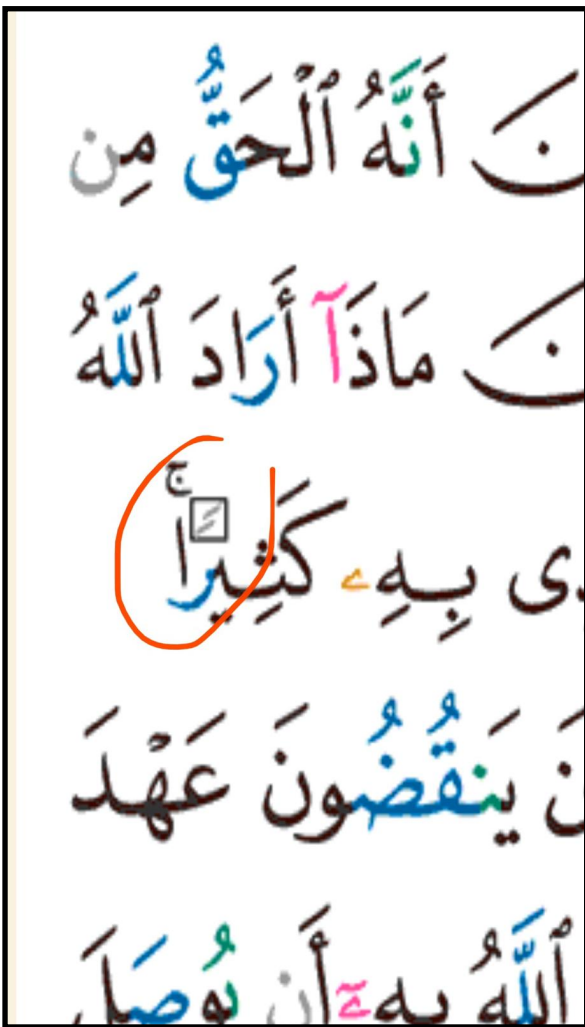 نَ أَنَّهُ ٱلْحَقُّ مِن
نَ مَاذَآ أَرَادَ ٱللَّهُ
دِى بِهِۦ كَثِيرًاۚ
نَ يَنقُضُونَ عَهْدَ
ٱللَّهُ بِهِۦٓ أَن يُوصَلَ